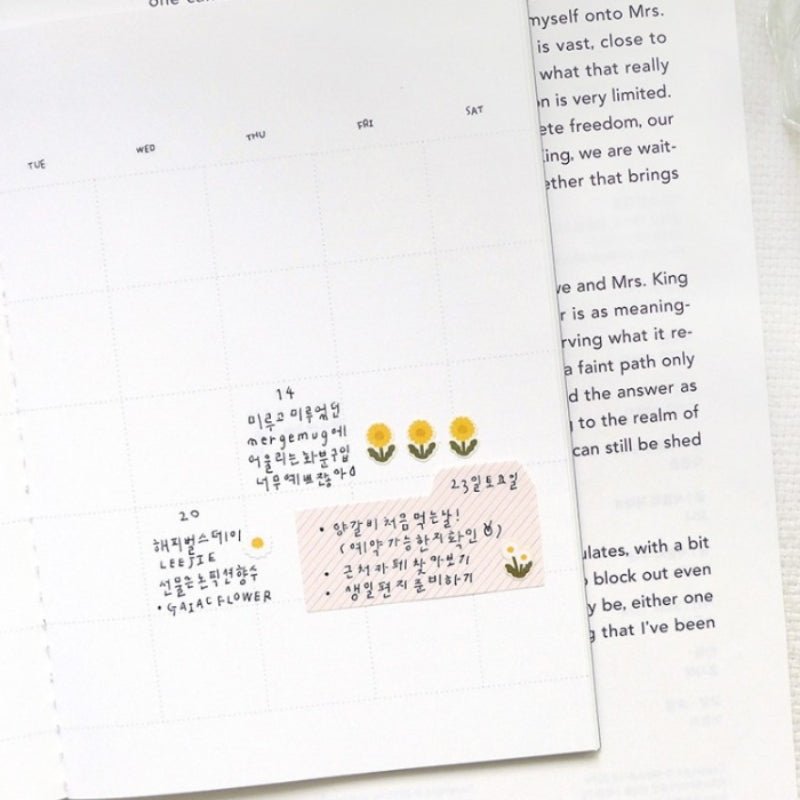 TUE
WED
THU
FRI
SAT
14
미루고 미루었던
mergemug에
어울리는 화분구입
너무예쁘잖아
20
해피벌스데이
LEEJIE
선물은논픽션향수
• GAIAC FLOWER
23일토요일
• 양갈비 처음 먹는날!
(예약 가능한지확인)
• 근처카페 찾아보기
• 생일편지준비하기
myself onto Mrs.
is vast, close to
what that really
is very limited.
freedom, our
we are wait-
that brings
and Mrs. King
is as meaning-
what it re-
a faint path only
the answer as
to the realm of
can still be shed
with a bit
block out even
be, either one
that I've been